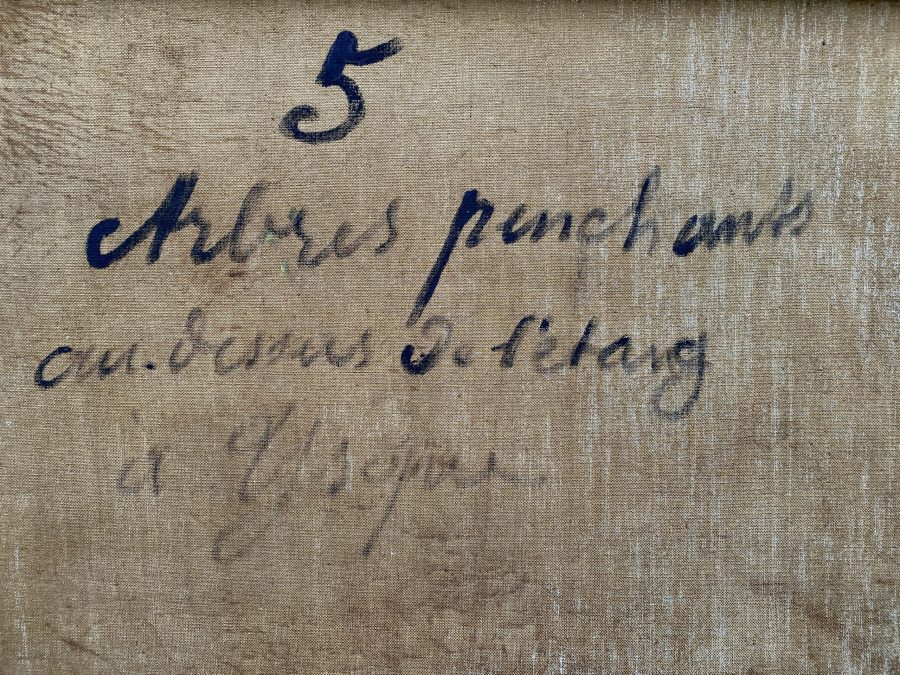 5
Arbres penchants
au-dessus de l'étang
à